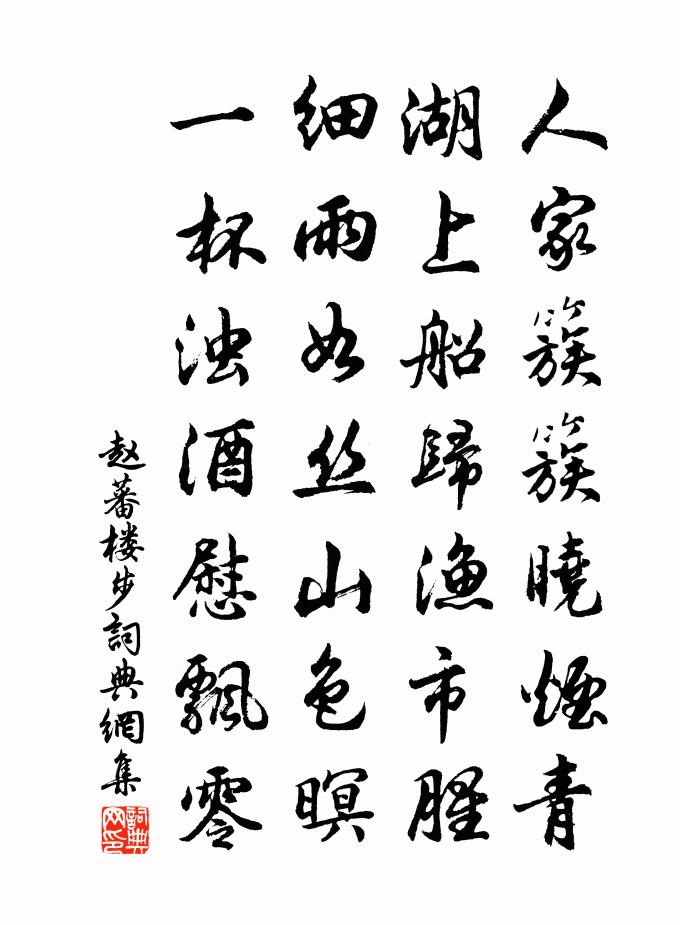 人家簇簇曉煙青
湖上船歸漁市腥
細雨如丝山色暝
一杯浊酒慰飄零
赵蕃楼步詞典網集
詞典网印